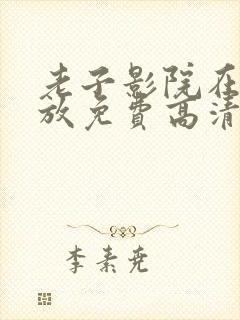 老子影院在
放免費高清
李素尧